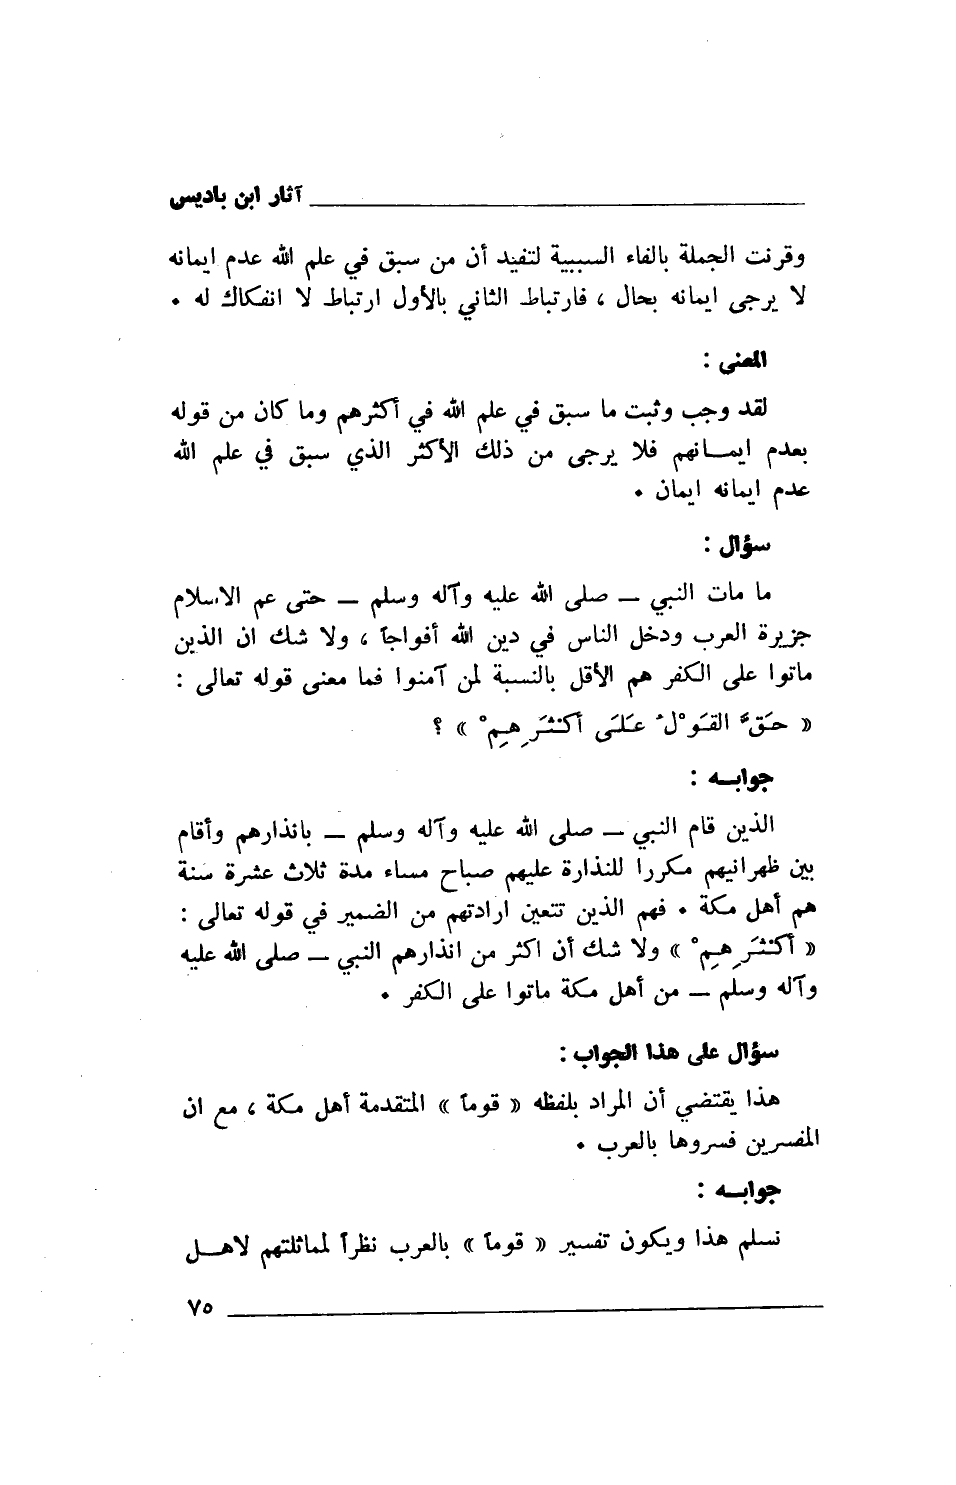 آثار ابن باديس
وقرنت الجملة بالفاء السببية لتفيد أن من سبق في علم الله عدم ايمانه
لا يرجى ايمانه بحال ، فارتباط الثاني بالأول ارتباط لا انفكاك له .
المعنى :
لقد وجب وثبت ما سبق في علم الله في أكثرهم وما كان من قوله
بعدم ايمــانهم فلا يرجى من ذلك الأكثر الذي سبق في علم الله
عدم ايمانه ايمان .
سؤال :
ما مات النبي ــ صلى الله عليه وآله وسلم ــ حتى عم الاسلام
جزيرة العرب ودخل الناس في دين الله أفواجاً ، ولا شك ان الذين
ماتوا على الكفر هم الأقل بالنسبة لمن آمنوا فما معنى قوله تعالى :
« حَقَّ القَوْلُ عَلَى أَكْثَرِهِمْ » ؟
جوابــه :
الذين قام النبي ــ صلى الله عليه وآله وسلم ــ بانذارهم وأقام
بين ظهرانيهم مكررا للنذارة عليهم صباح مساء مدة ثلاث عشرة سنة
هم أهل مكة . فهم الذين تتعين ارادتهم من الضمير في قوله تعالى :
« أَكْثَرِهِمْ » ولا شك أن اكثر من انذارهم النبي ــ صلى الله عليه
وآله وسلم ــ من أهل مكة ماتوا على الكفر .
سؤال على هذا الجواب :
هذا يقتضي أن المراد بلفظه « قوماً » المتقدمة أهل مكة ، مع ان
المفسرين فسروها بالعرب .
جوابــه :
نسلم هذا ويكون تفسير « قوماً » بالعرب نظراً لمماثلتهم لاهــل
٧٥